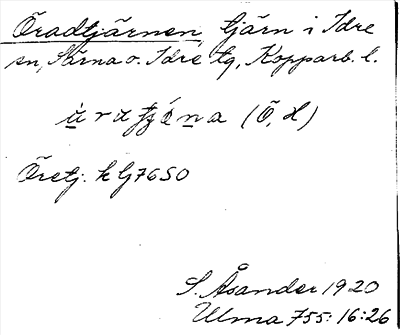 Öradtjärnen, tjärn i Idre
sn, Särna o. Idre tg, Kopparb. l.
(Ö, H)
Öretj. k G7650
S. Åsander 1920
Ulma 755:16:26